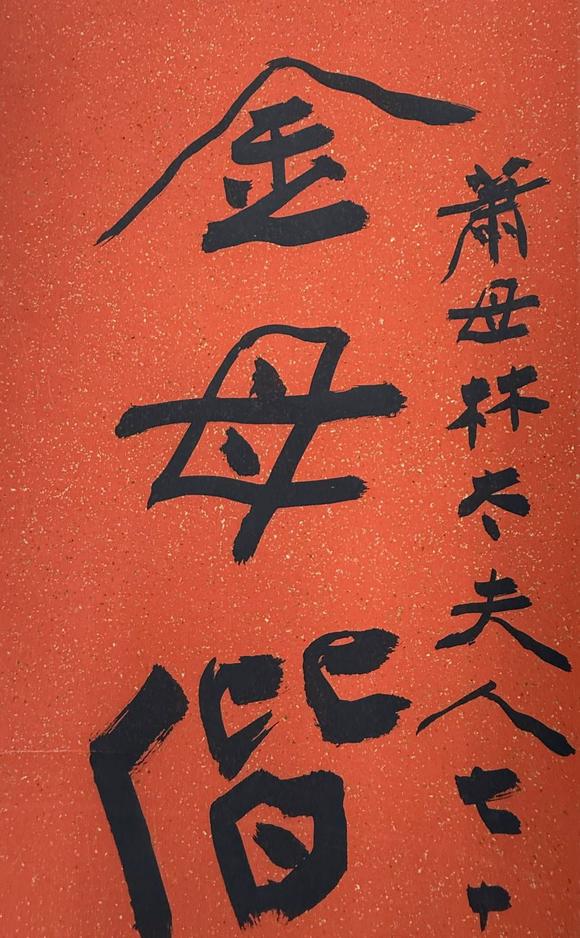 蕭母林太夫人七十
金母偕